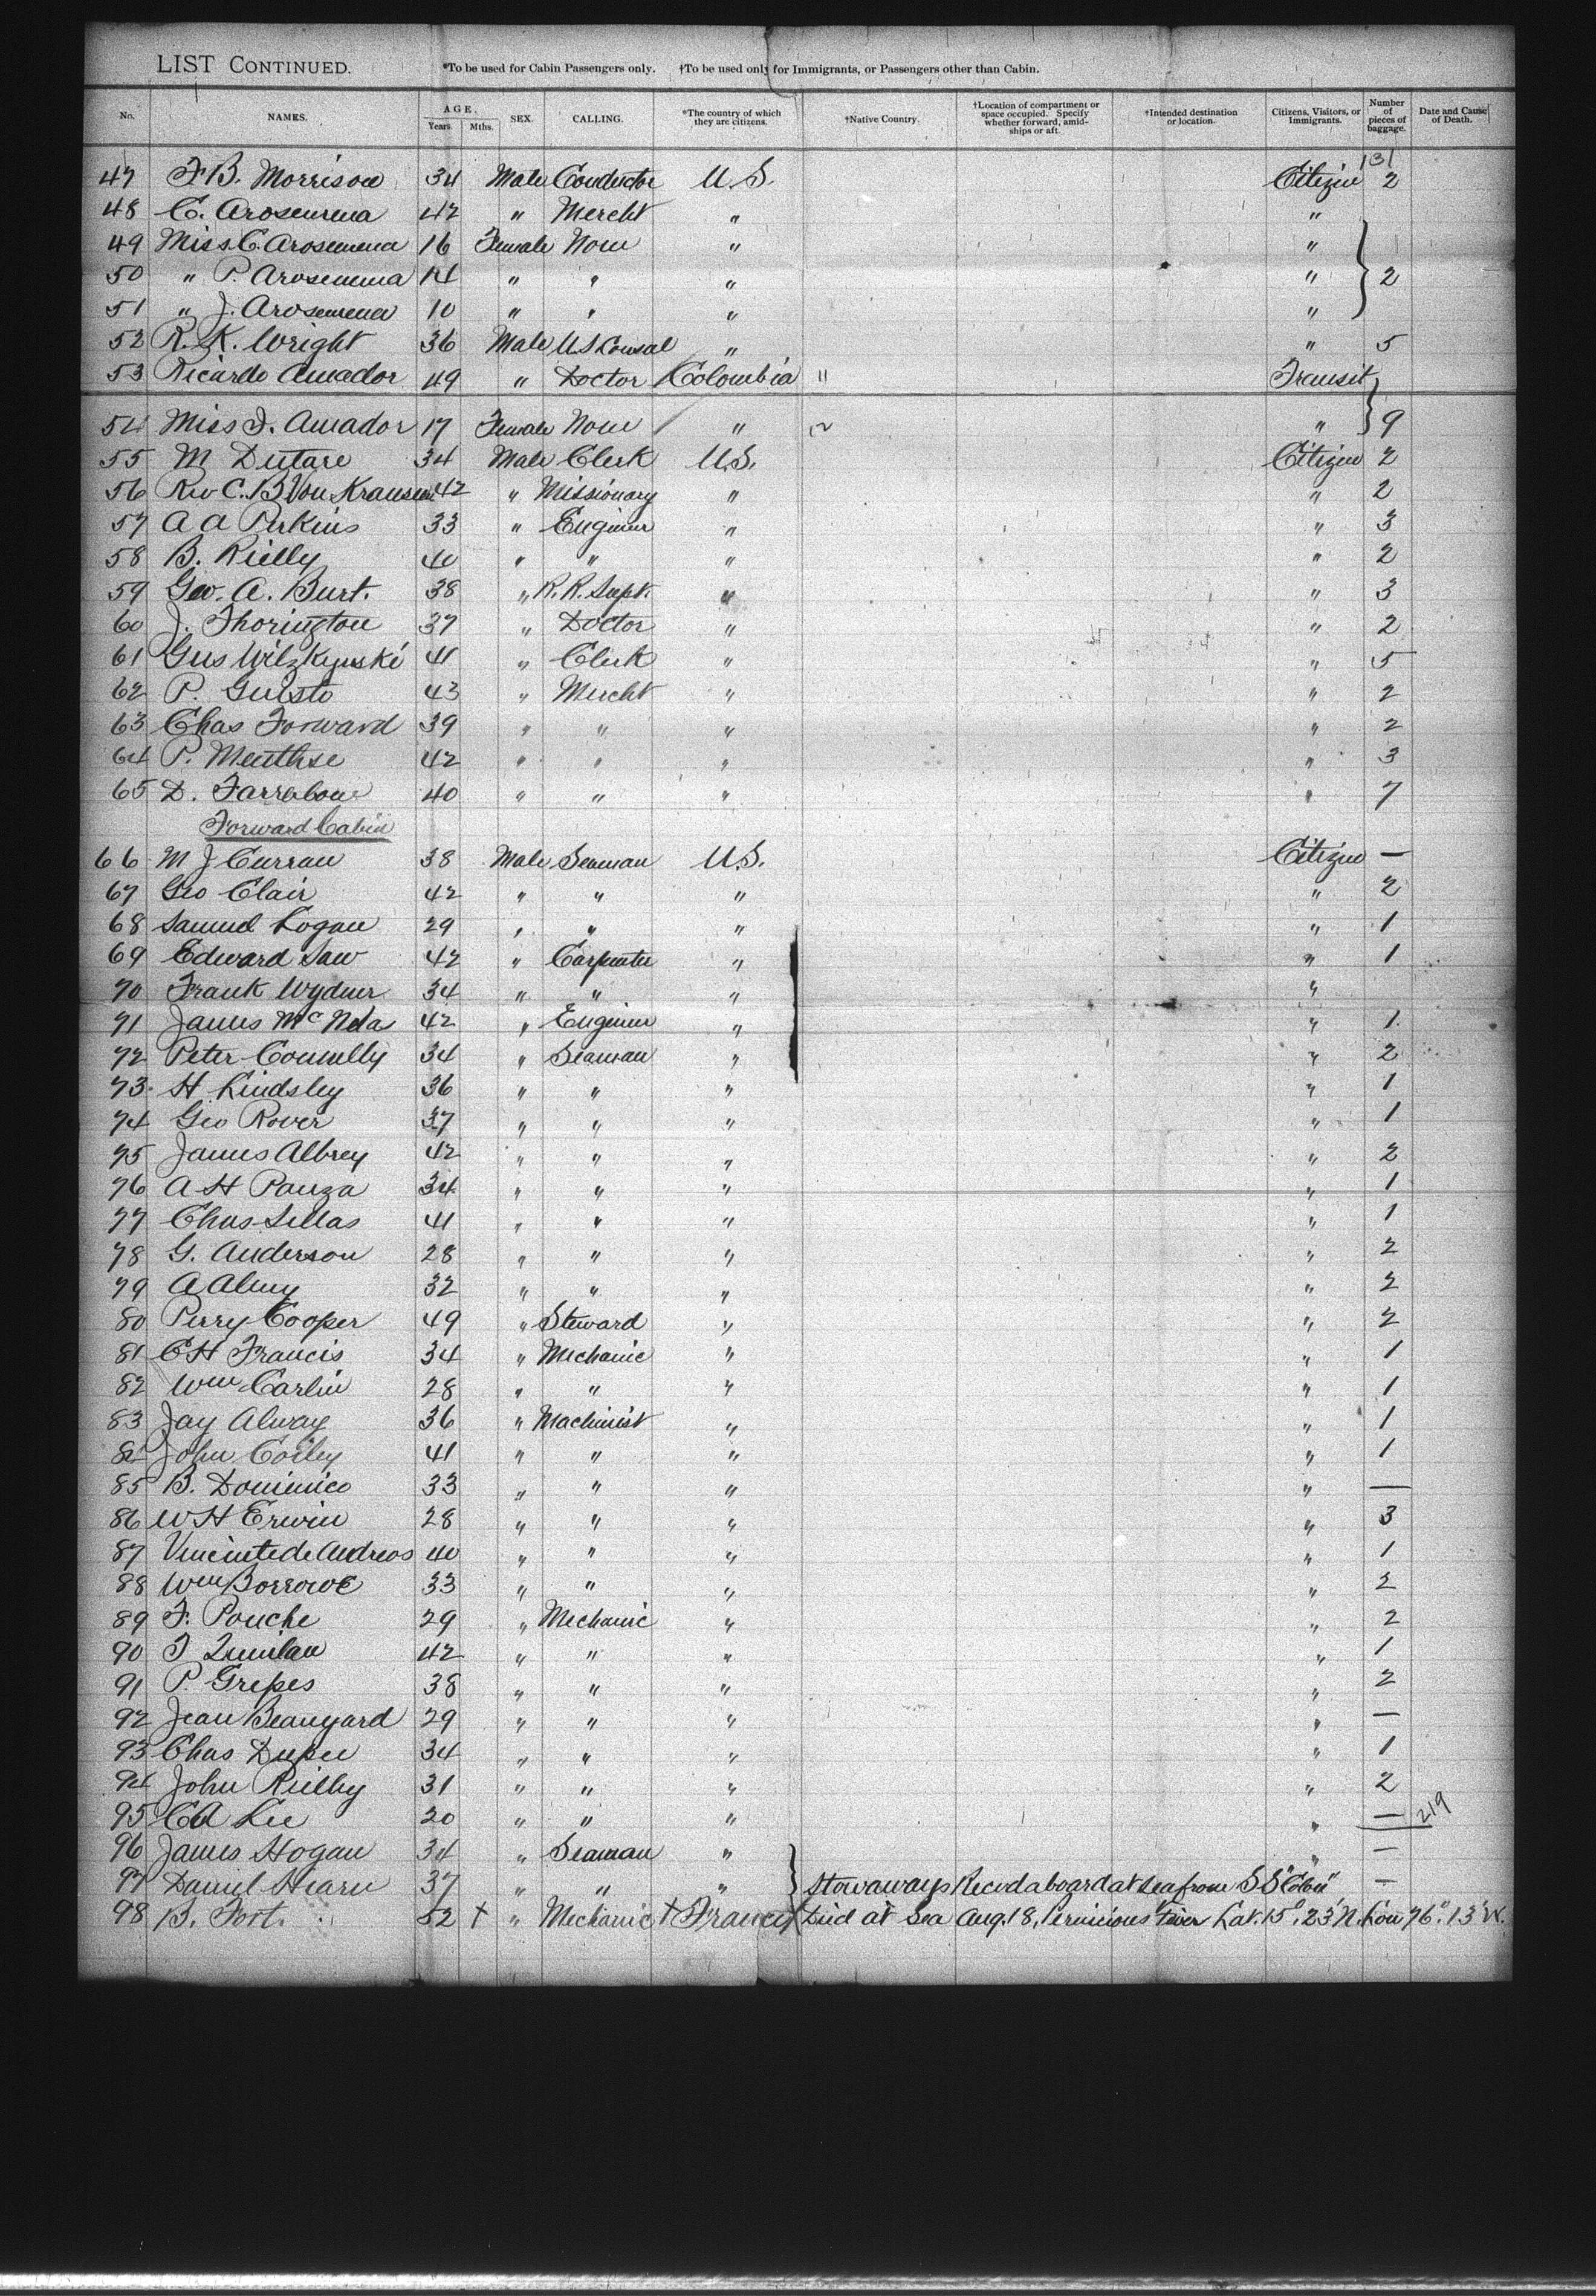 LIST CONTINUED. *To be used for Cabin Passengers only. †To be used only for Immigrants, or Passengers other than Cabin.
No. NAMES. AGE. Years. Mths. SEX. CALLING. *The country of which they are citizens. †Native Country. †Location of compartment or space occupied. Specify whether forward, amidships or aft. †Intended destination or location. Citizens, Visitors, or Immigrants. Number of pieces of baggage. Date and Cause of Death.
131
47 F B. Morrison 34 Male Conductor U.S. Citizen 2
48 C. Arosemena 42 " Mercht " "
49 Miss C. Arosemena 16 Female None " "
50 " P. Arosemena 14 " " " " 2
51 " J. Arosemena 10 " " " "
52 R. K. Wright 36 Male U S Consul " " 5
53 Ricardo Amador 49 " Doctor Colombia " Transit
54 Miss J. Amador 17 Female None " " 9
55 M Dutare 34 Male Clerk U.S. Citizen 2
56 Rev C. B. Von Krausen 42 " Missionary " " 2
57 A A Perkins 33 " Engineer " " 3
58 B. Rielly 40 " " " " 2
59 Geo. A. Burt. 38 " R. R. Supt. " " 3
60 J. Thorington 37 " Doctor " " 2
61 Gus 41 " Clerk " " 5
62 P. Guisto 43 " Mercht " " 2
63 Chas Forward 39 " " " " 2
64 P. 42 " " " " 3
65 D. 40 " " " " 7
Forward Cabin
66 M J Curran 38 Male Seaman U.S. Citizen —
67 Geo Clair 42 " " " " 2
68 Samuel Logan 29 " " " " 1
69 Edward Saw 42 " Carpenter " " 1
70 Frank Wydner 34 " " " "
71 James Mc Nela 42 " Engineer " " 1
72 Peter Connelly 34 " Seaman " " 2
73 H Lindsley 36 " " " " 1
74 Geo Rover 37 " " " " 1
75 James Albrey 42 " " " " 2
76 A H Panza 34 " " " " 1
77 Chas Sillas 41 " " " " 1
78 G. Anderson 28 " " " " 2
79 A Almy 32 " " " " 2
80 Perry Cooper 49 " Steward " " 2
81 C H Francis 34 " Mechanic " " 1
82 Wm Carlin 28 " " " " 1
83 Jay Alway 36 " Machinist " " 1
84 John Coiley 41 " " " " 1
85 B. Dominico 33 " " " " —
86 W H Erwin 28 " " " " 3
87 Vincinte de Andreos 40 " " " " 1
88 Wm Borrowe 33 " " " " 2
89 F. Pouche 29 " Mechanic " " 2
90 T Quinlan 42 " " " " 1
91 P. Grepes 38 " " " " 2
92 Jean Beaugard 29 " " " " —
93 Chas Dupee 34 " " " " 1
94 John Rielly 31 " " " " 2
95 C A Lee 20 " " " " — 219
96 James Hogan 34 " Seaman " " —
97 Daniel Hearn 37 " " " Stowaways Recvd aboard at sea from S S "Colon" —
98 B. Fort. 52 † " Mechanic † France † Died at Sea Aug. 18, Pernicious Fever Lat. 15°. 23' N. Lon 76°. 13' W.